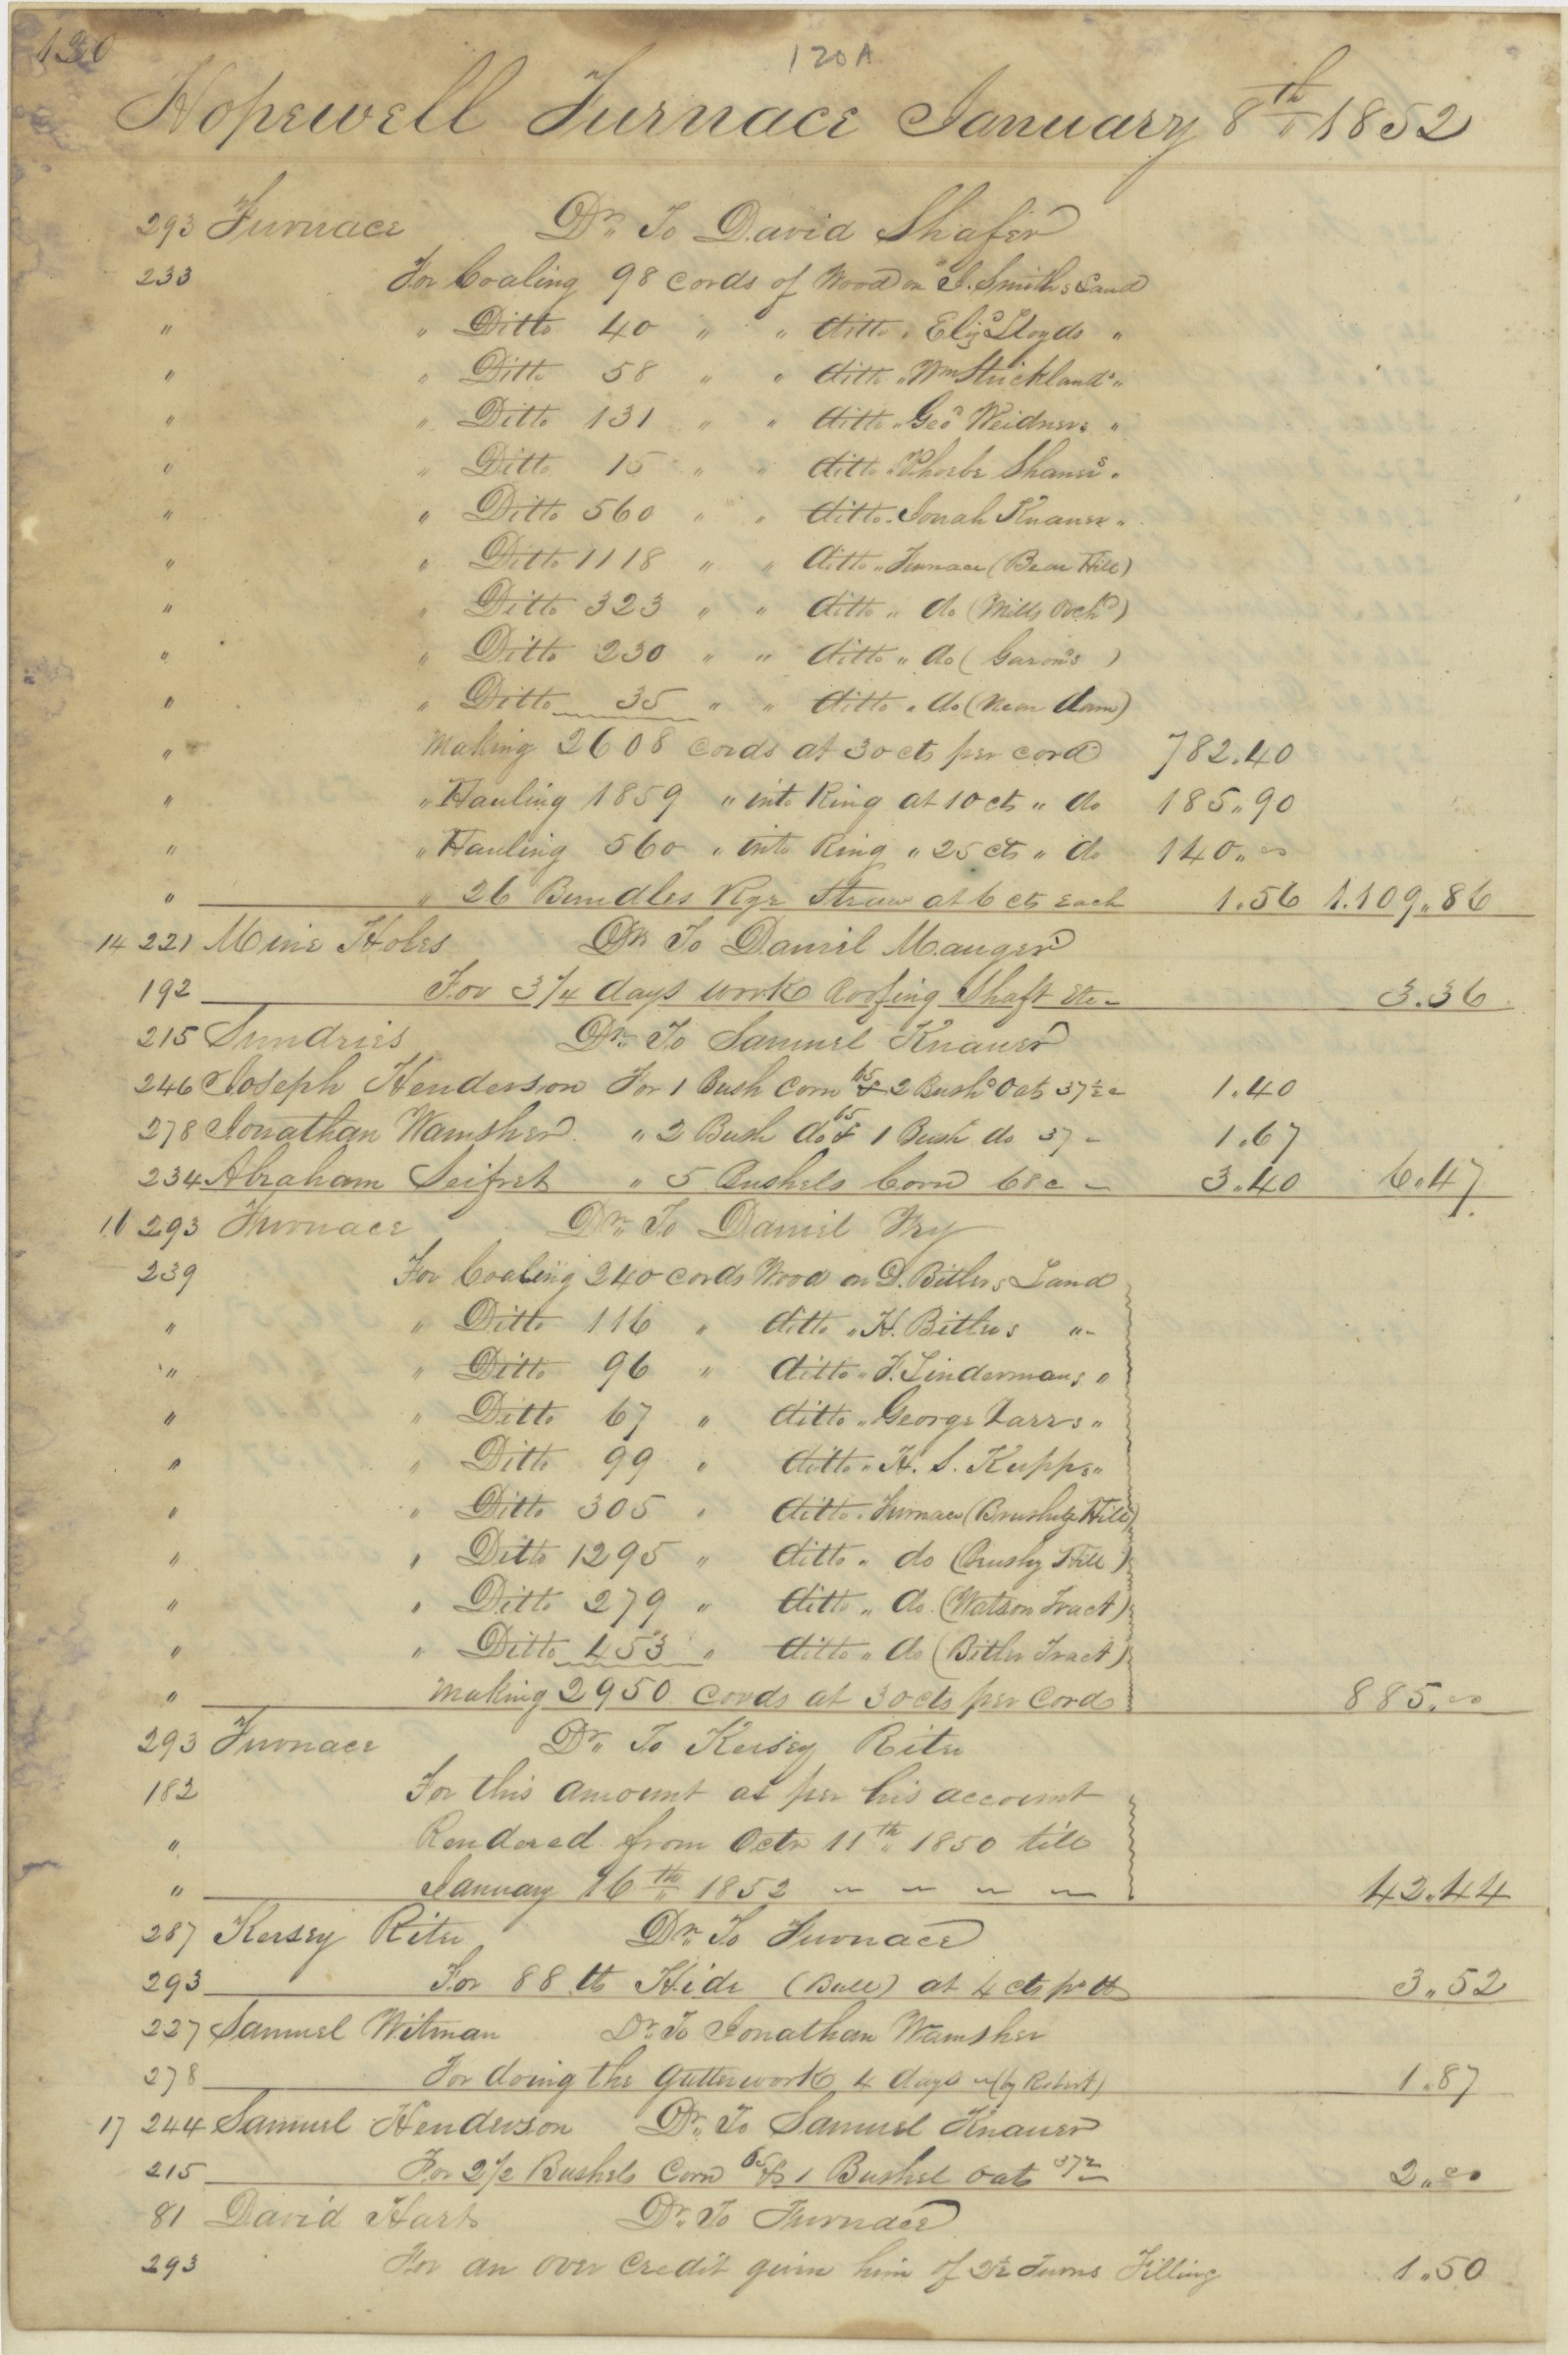 130
120A
Hopewell Furnace January 8th 1852
293 Furnace Dr. To David Shafer
233 For Coaling 98 cords of Wood on J. Smiths Land
" " Ditto 40 " " ditto " Eliz Lloyds "
" " Ditto 58 " " ditto " Wm Stricklands "
" " Ditto 131 " " ditto " Geo Weidners "
" " Ditto 15 " " ditto " Phoebe Shaners "
" " Ditto 560 " " ditto " Jonah Knauer "
" " Ditto 1118 " " ditto " Furnace (Bear Hill)
" " Ditto 323 " " ditto " do (Mills Orchd)
" " Ditto 230 " " ditto " do ( )
" " Ditto 35 " " ditto " do (Near dam)
" Making 2608 cords at 30 cts per cord 782.40
" " Hauling 1859 " into Ring at 10 cts " do 185.90
" " Hauling 560 " into Ring " 25 cts " do 140.00
" " 26 Bundles Rye Straw at 6 cts Each 1.56 1.109.86
14 221 Mine Holes Dr To Daniel Mauger
192 For 3/4 days work Roofing Shaft Etc 3.36
215 Sundries Dr. To Samuel Knauer
246 Joseph Henderson For 1 Bush Corn 65 & 2 Bush Oats 37½ c 1.40
278 Jonathan Wamsher " 2 Bush do 65 & 1 Bush do 37 1.67
234 Abraham Seifret " 5 Bushels Corn 68 c 3.40 6.47
16 293 Furnace Dr. To Daniel Fry
239 For Coaling 240 cords Wood on D. Bitlers Land
" " Ditto 116 " ditto " H. Bitlers "
" " Ditto 96 " ditto " F. Lindermans "
" " Ditto 67 " ditto " George "
" " Ditto 99 " ditto " H. S. Kupps "
" " Ditto 305 " ditto " Furnace ( Hill)
" " Ditto 1295 " ditto " do (Brushy Hill)
" " Ditto 279 " ditto " do (Watson Tract)
" " Ditto 453 " ditto " do (Bitler Tract)
" Making 2950 cords at 30 cts per Cord 885.00
293 Furnace Dr. To Kersey Riter
182 For this amount as per his account
" Rendered from Octr 11th 1850 till
" January 16th 1852 42.44
287 Kersey Riter Dr. To Furnace
293 For 88 lb Hide (Bull) at 4 cts pr lb 3.52
227 Samuel Witman Dr. To Jonathan Wamsher
278 For doing the Gutterwork 4 days (by Robert) 1.87
17 244 Samuel Henderson Dr. To Samuel Knauer
215 For 2½ Bushels Corn 65 & 1 Bushel oats 37½ 2.00
81 David Hart Dr. To Furnace
293 For an over Credit given him of 2½ Turns Filling 1.50